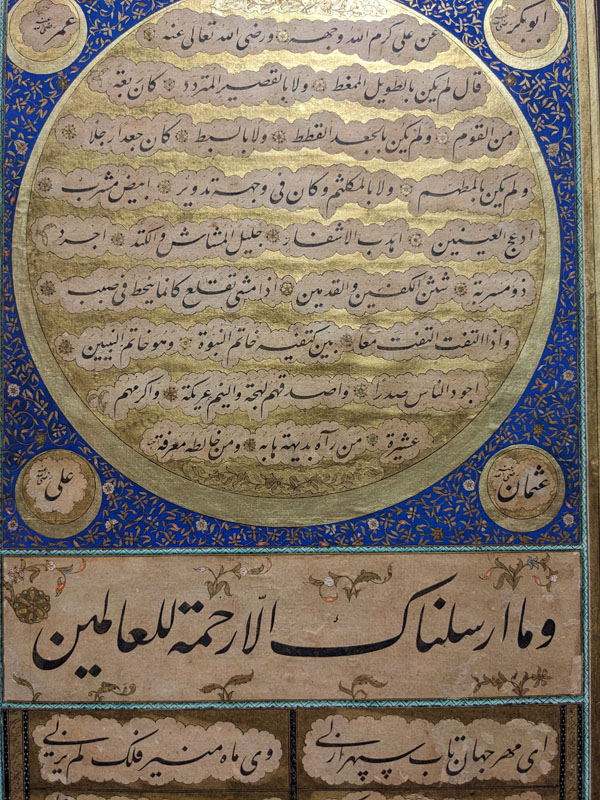 ابوبكر
عمر
عن على كرم الله وجهه ورضى الله تعالى عنه
قال لم يكن بالطويل الممغط ولا بالقصير المتردد كان ربعة
من القوم ولم يكن بالجعد القطط ولا بالسبط كان جعدا رجلا
ولم يكن بالمطهم ولا بالمكلثم وكان فى وجهه تدوير ابيض مشرب
ادعج العينين اهدب الاشفار جليل المشاش والكتد اجرد
ذو مسربة شثن الكفين والقدمين اذا مشى تقلع كانما ينحط فى صبب
واذا التفت التفت معا بين كتفيه خاتم النبوة وهو خاتم النبيين
اجود الناس صدرا واصدقهم لهجة والينهم عريكة واكرمهم
عشيرة من رآه بديهة هابه ومن خالطه معرفة
عثمان
على
وما ارسلناك الّا رحمة للعالمين
اى مهر جهان تاب سپهر ازلى
وى ماه منير فلك لم يزلى